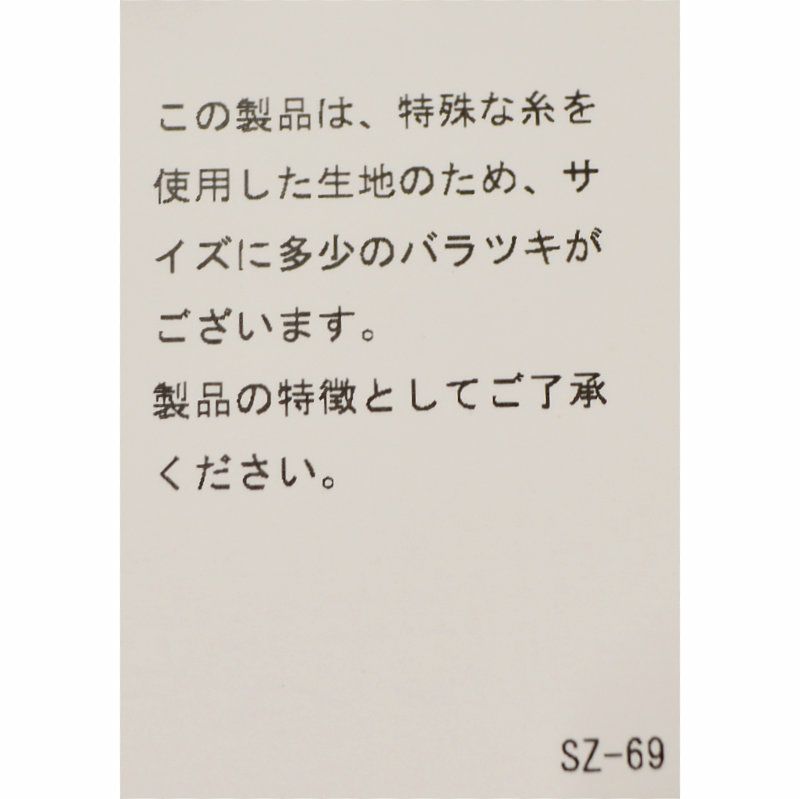 この製品は、特殊な糸を
使用した生地のため、サ
イズに多少のバラツキが
ございます。
製品の特徴としてご了承
ください。
SZ-69